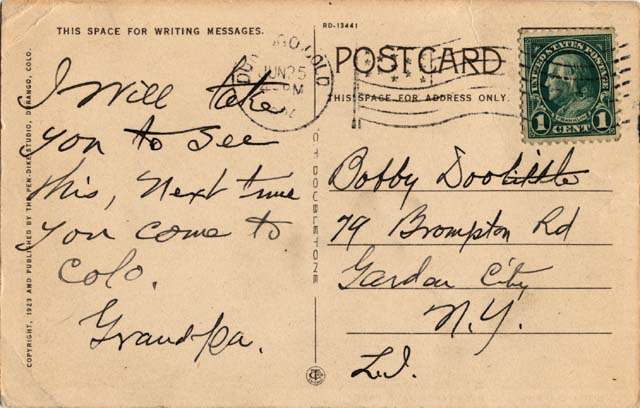 THIS SPACE FOR WRITING MESSAGES.
RD-13441
POST CARD
THIS SPACE FOR ADDRESS ONLY.
DURANGO, COLO
JUN 25
PM
UNITED STATES POSTAGE
FRANKLIN
1 CENT 1
I Will take
you to see
this, Next time
you come to
Colo.
Grandpa.
Bobby Doolittle
79 Brompton Rd
Garden City
N.Y.
L.I.
COPYRIGHT, 1923 AND PUBLISHED BY THE PEN-DIKE STUDIO, DURANGO, COLO.
C T DOUBLETONE